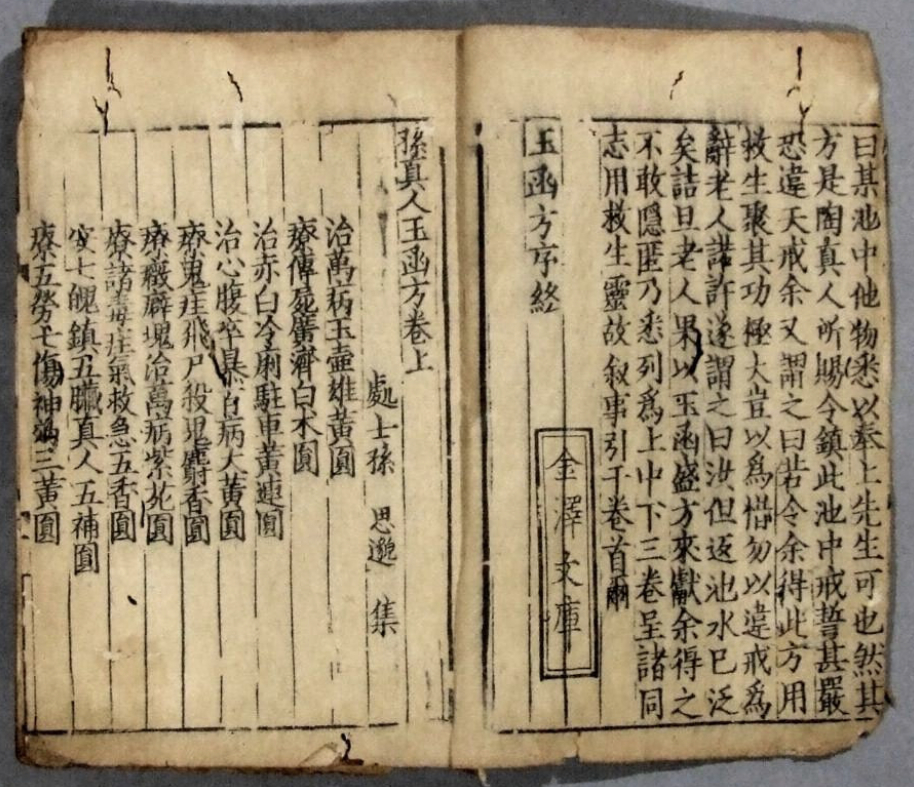 曰某池中他物悉以奉上先生可也然其
方是陶真人所賜令鎮此池中戒誓甚嚴
恐違天戒余又謂之曰若令余得此方用
救生聚其功極大豈以為惜勿以違戒為
辭老人諾許遂謂之曰汝但返池水已泛
矣詰旦老人果以玉函盛方來獻余得之
不敢隱匿乃悉列為上中下三卷呈諸同
志用救生靈故叙事引于卷首爾
玉函方序終
金澤文庫
孫真人玉函方卷上
處士孫 思邈 集
治萬病玉壺雄黃圓
療傳屍廣濟白术圓
治赤白冷痢駐車黃連圓
治心腹卒暴百病大黃圓
療鬼疰飛尸殺鬼麝香圓
療癥癖塊治萬病紫菀圓
療諸毒疰氣救急五香圓
安七魄鎮五臟真人五補圓
療五勞七傷神 三黃圓